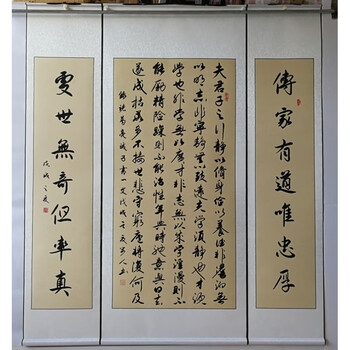 傳家有道唯忠厚
夫君子之行靜以脩身儉以養德非澹泊無
以明志非寧靜無以致遠夫學須靜也才須
學也非學無以廣才非志無以成學淫慢則不
能勵精險躁則不能治性年與時馳意與日去
遂成枯落多不接世悲守窮廬將復何及
錄諸葛亮誡子書一文戊戌之夏
處世無奇但率真
戊戌之夏